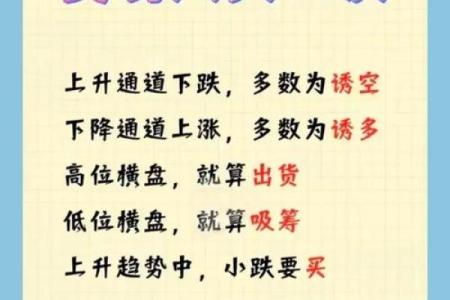 上升通道下跌，多数为诱空
下降通道上涨，多数为诱多
高位横盘，就算出货
低位横盘，就算吸筹
上升趋势中，小跌要买